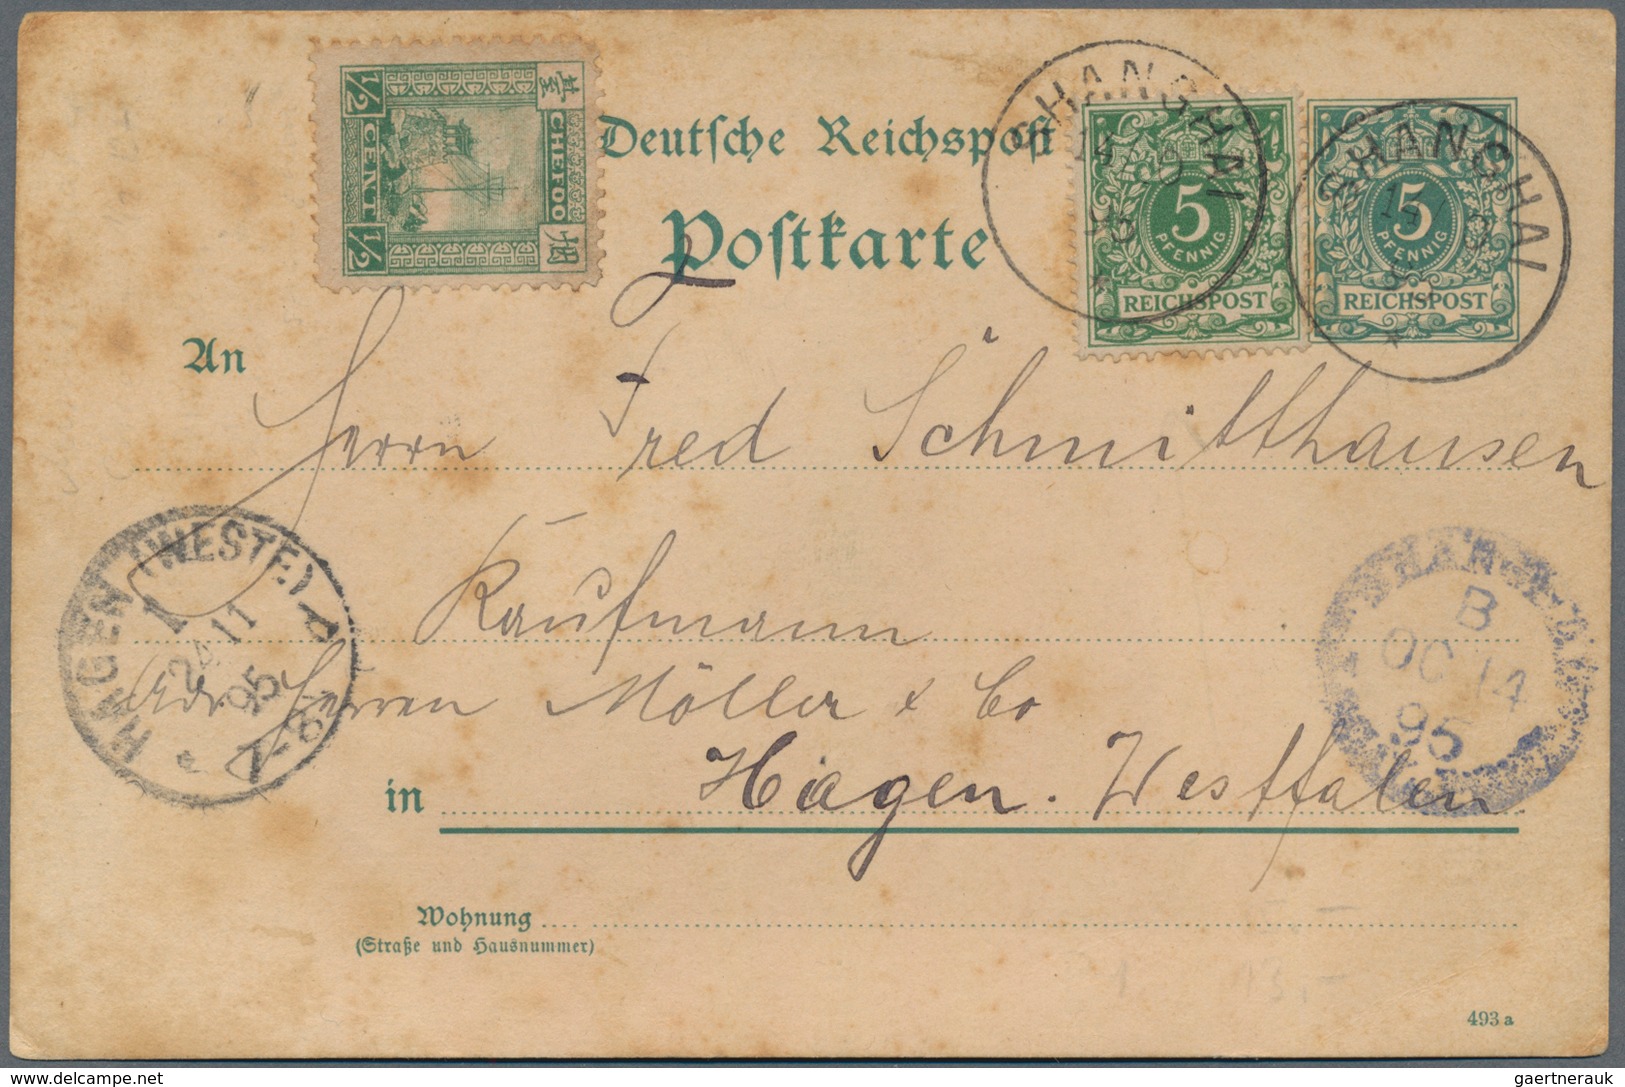 1/2 CENT 1/2
CHEFOO
烟
臺
Deutsche Reichspost
Postkarte
SHANGHAI
14
95
*
5
PFENNIG
REICHSPOST
SHANGHAI
14
*
5
PFENNIG
REICHSPOST
An
Herrn Fred Schmitthausen
Kaufmann
Adr Herren Möller & Co
in Hagen. Westfalen
HAGEN (WESTF.)
1
11
95
7-8
*
B
OC 14
95
Wohnung
(Straße und Hausnummer)
493 a
www.delcampe.net
gaertnerauk